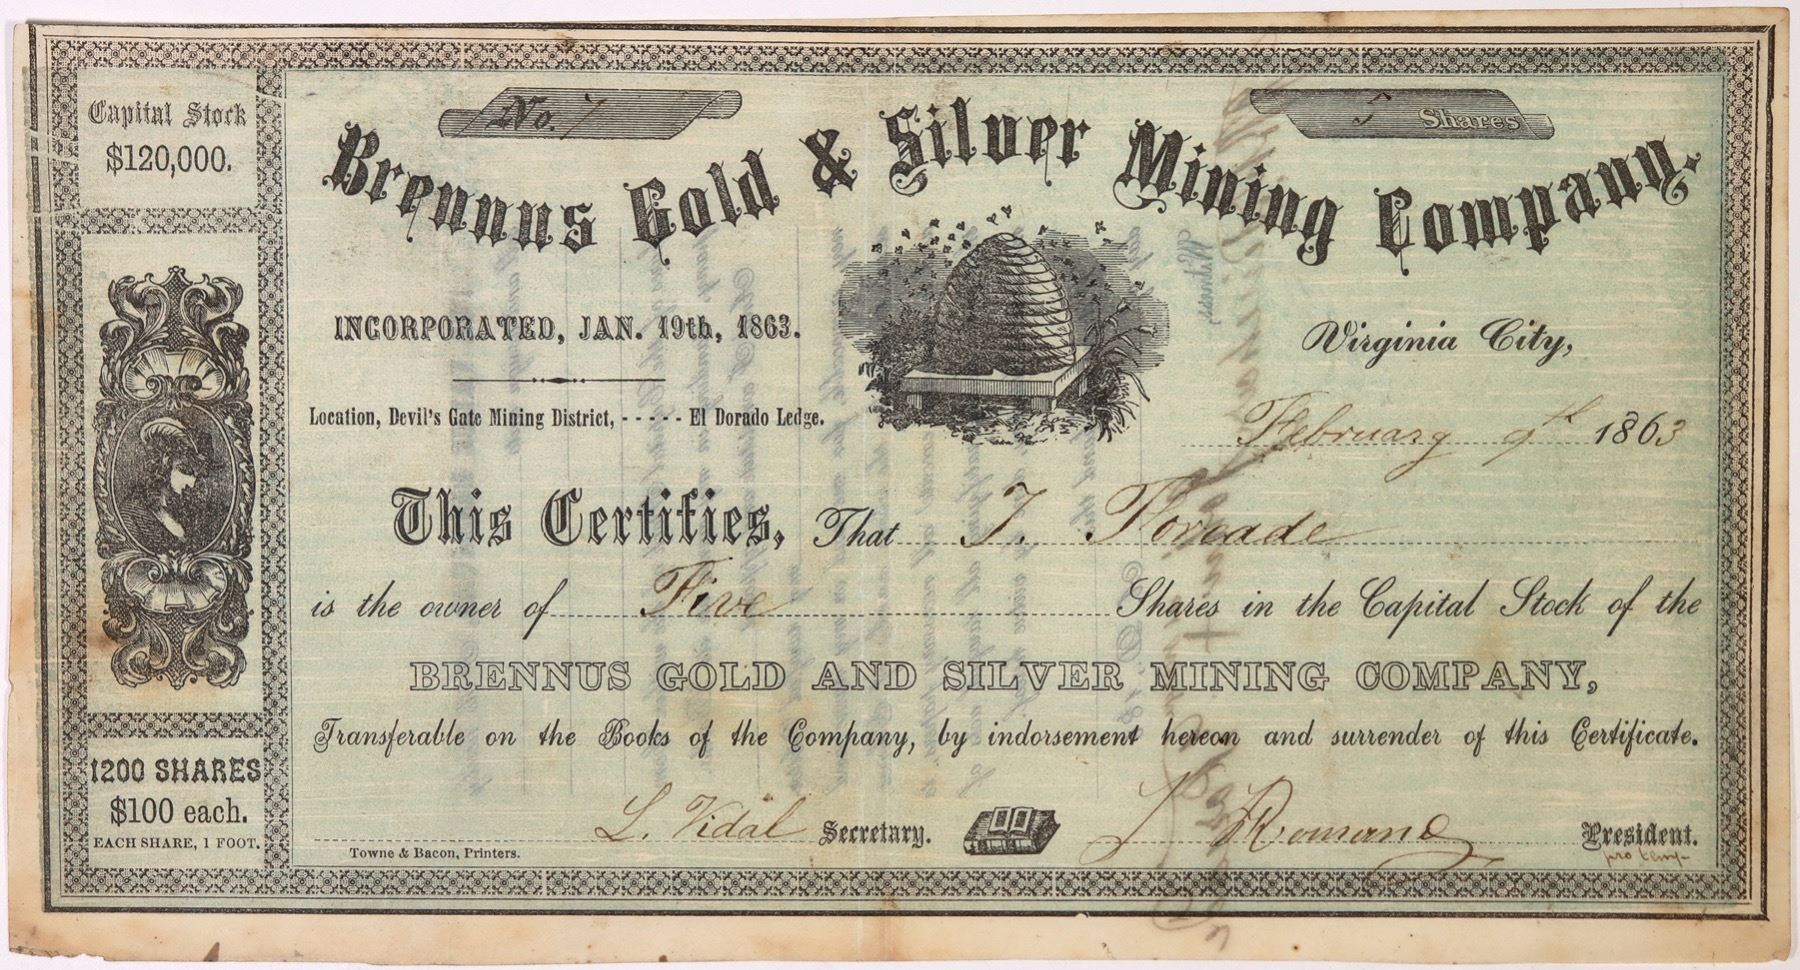 Capital Stock
$120,000.
No. 7
5 Shares
Brennus Gold & Silver Mining Company.
INCORPORATED, JAN. 19th, 1863.
Virginia City,
Location, Devil's Gate Mining District, - - - - - El Dorado Ledge.
February 9th 1863
This Certifies, That J. Forcade
is the owner of Five Shares in the Capital Stock of the
BRENNUS GOLD AND SILVER MINING COMPANY,
Transferable on the Books of the Company, by indorsement hereon and surrender of this Certificate.
1200 SHARES
$100 each.
EACH SHARE, 1 FOOT.
L. Vidal Secretary.
J. Romano President.
pro temp-
Towne & Bacon, Printers.